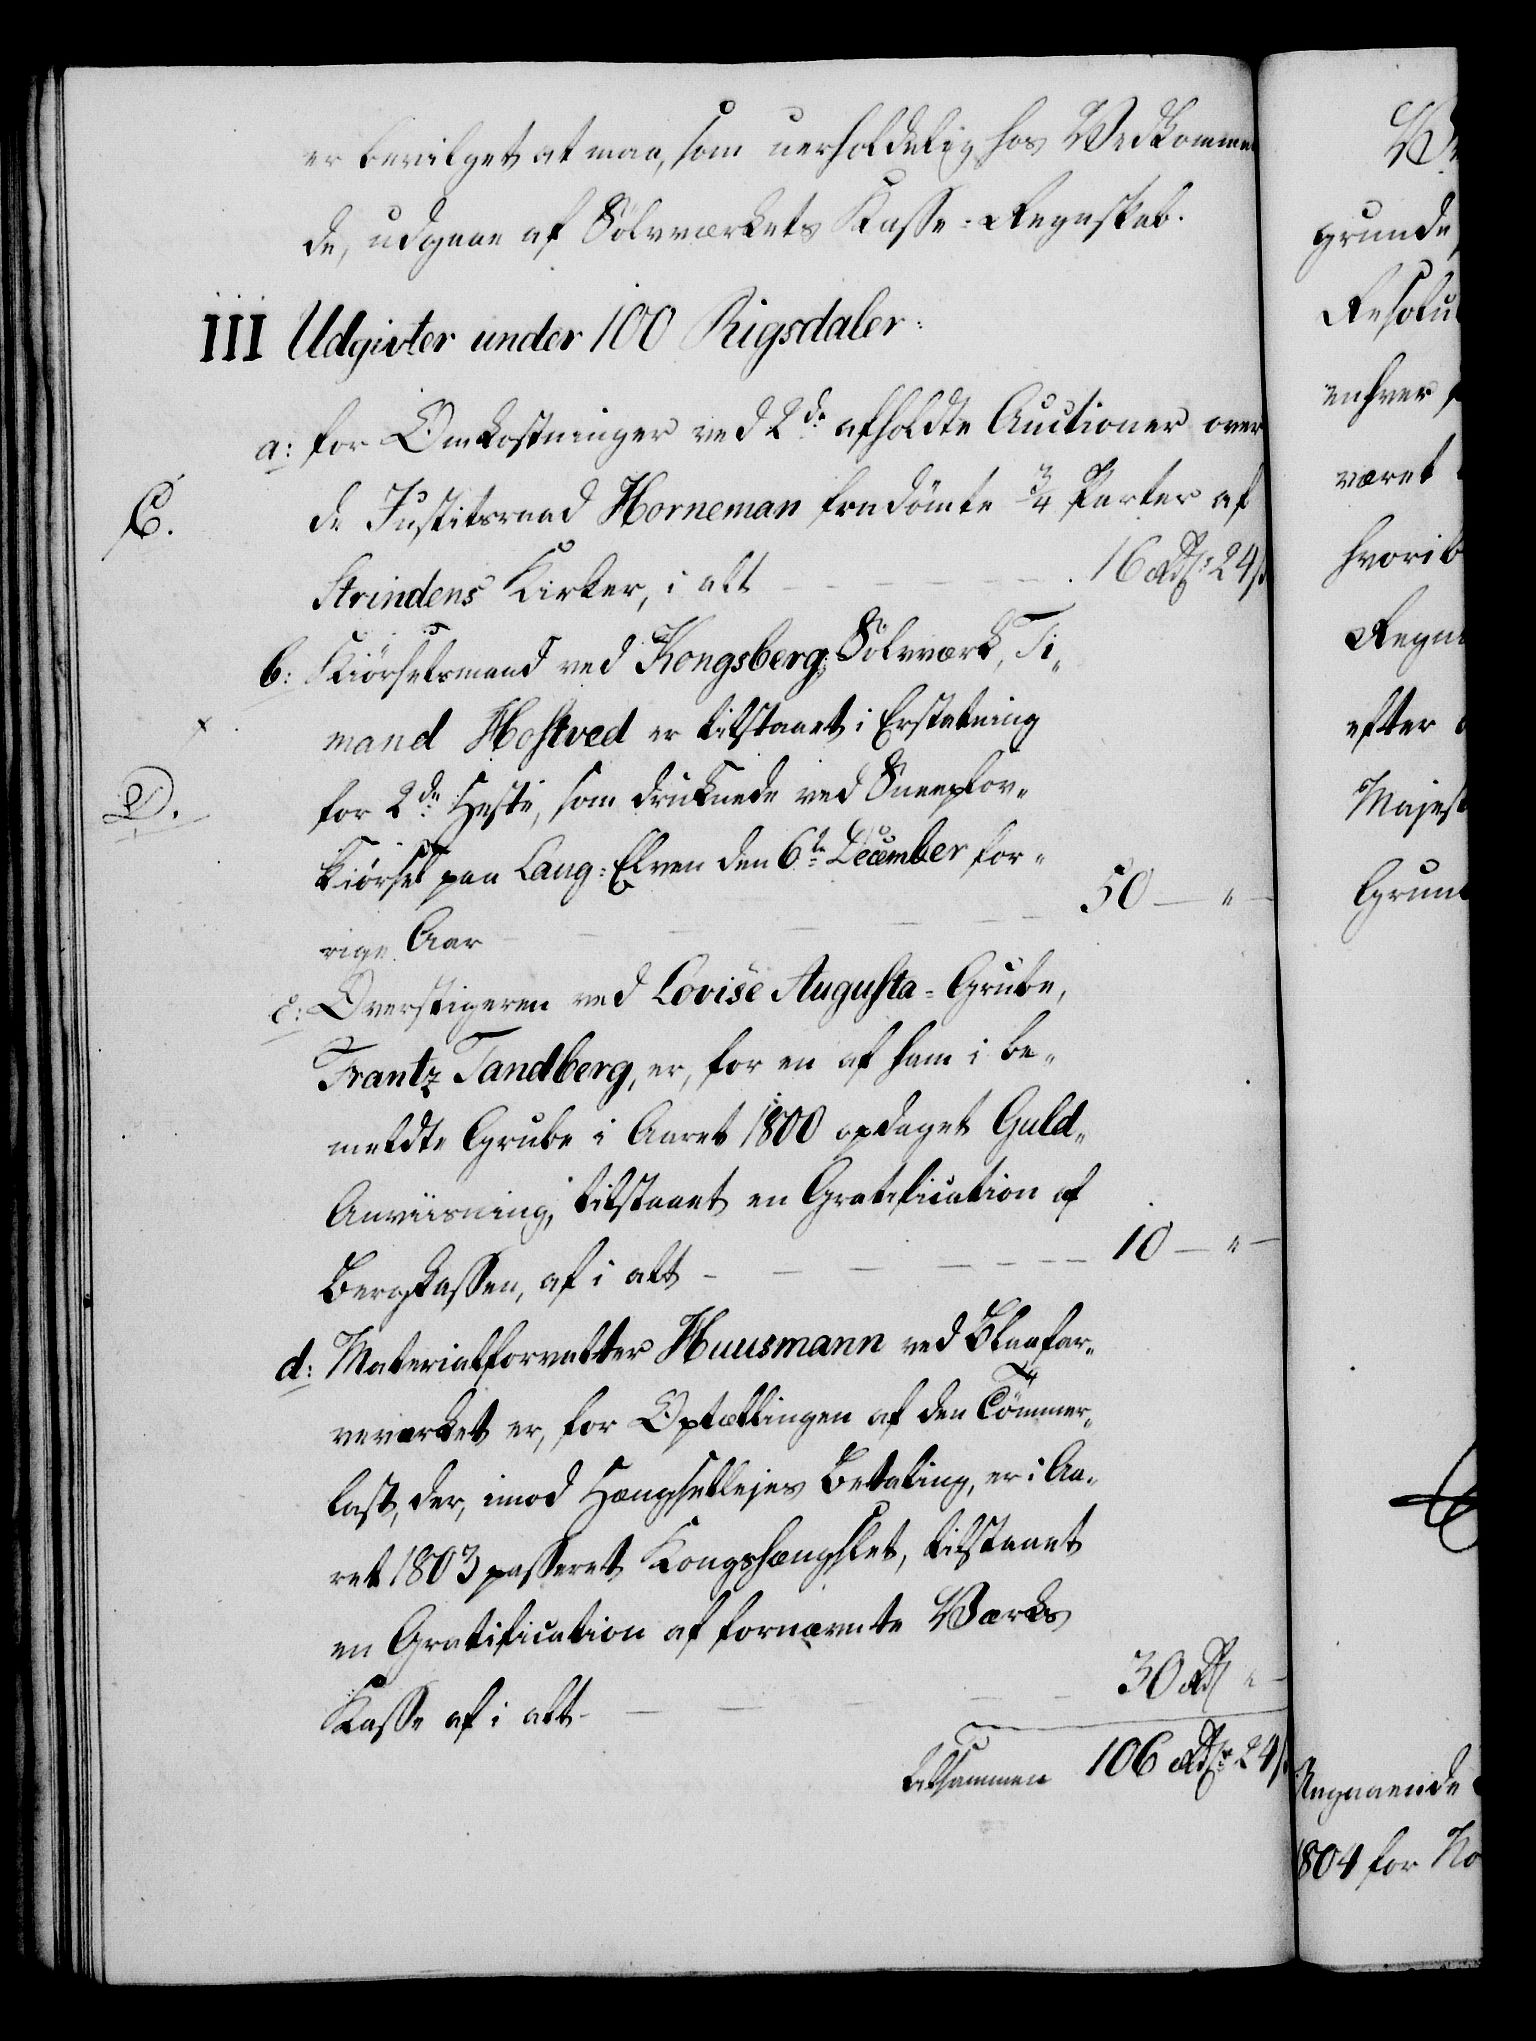 er bevilget at maa, som uerholdelig hos Vedkommen
de, udgaae af Sölvværkets Kasse-Regnskab.
III Udgivter under 100 Rigsdaler:
a: for Omkostninger ved 2de afholdte Auctioner over
C.
de Justitsraad Horneman fradömte 3/4 Parter af
Strindens Kirker, i alt 16 Rdlr 24 s
b: Kiörselsmand ved Kongsberg Sölvværk, Ti-
mand Hostved er tilstaaet i Erstatning
D.
for 2de Heste, som druknede ved Sneeplov-
kiörsel paa Laug-Elven den 6te December for-
rige Aar 50 — " —
c: Overstigeren ved Lovise Augusta-Grube,
Frantz Tandberg, er, for en af ham i be-
meldte Grube i Aaret 1800 opdaget Guld-
Anviisning, tilstaaet en Gratification af
Bergkassen, af i alt 10 — " —
d: Materialforvalter Huusmann ved Blaafar-
veværket er, for Optællingen af den Tömmer-
last, der, imod Hængselleies Betaling, er i Aa-
ret 1803 passeret Kongshængslet, tilstaaet
en Gratification af fornævnte Værks
Kasse af i alt 30 Rd " —
tilsammen 106 Rdlr 24 s
grunde
Resolu
enhver
været
hvorib
Regn
efter
Majest
Grun
Angaaende
1804 for No